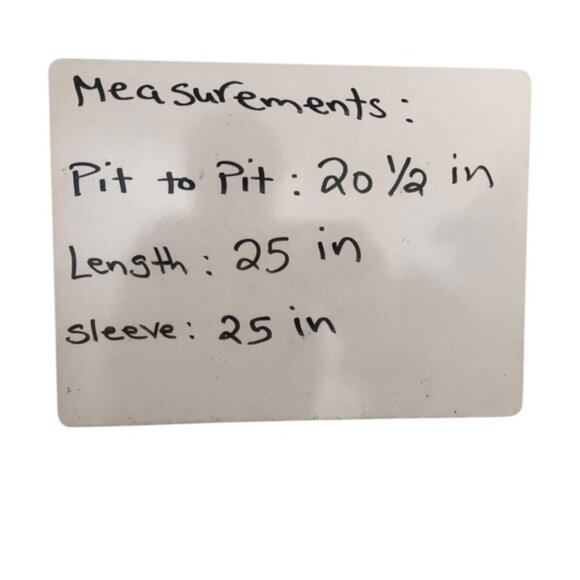 Measurements:
Pit to Pit: 20 1/2 in
Length: 25 in
Sleeve: 25 in